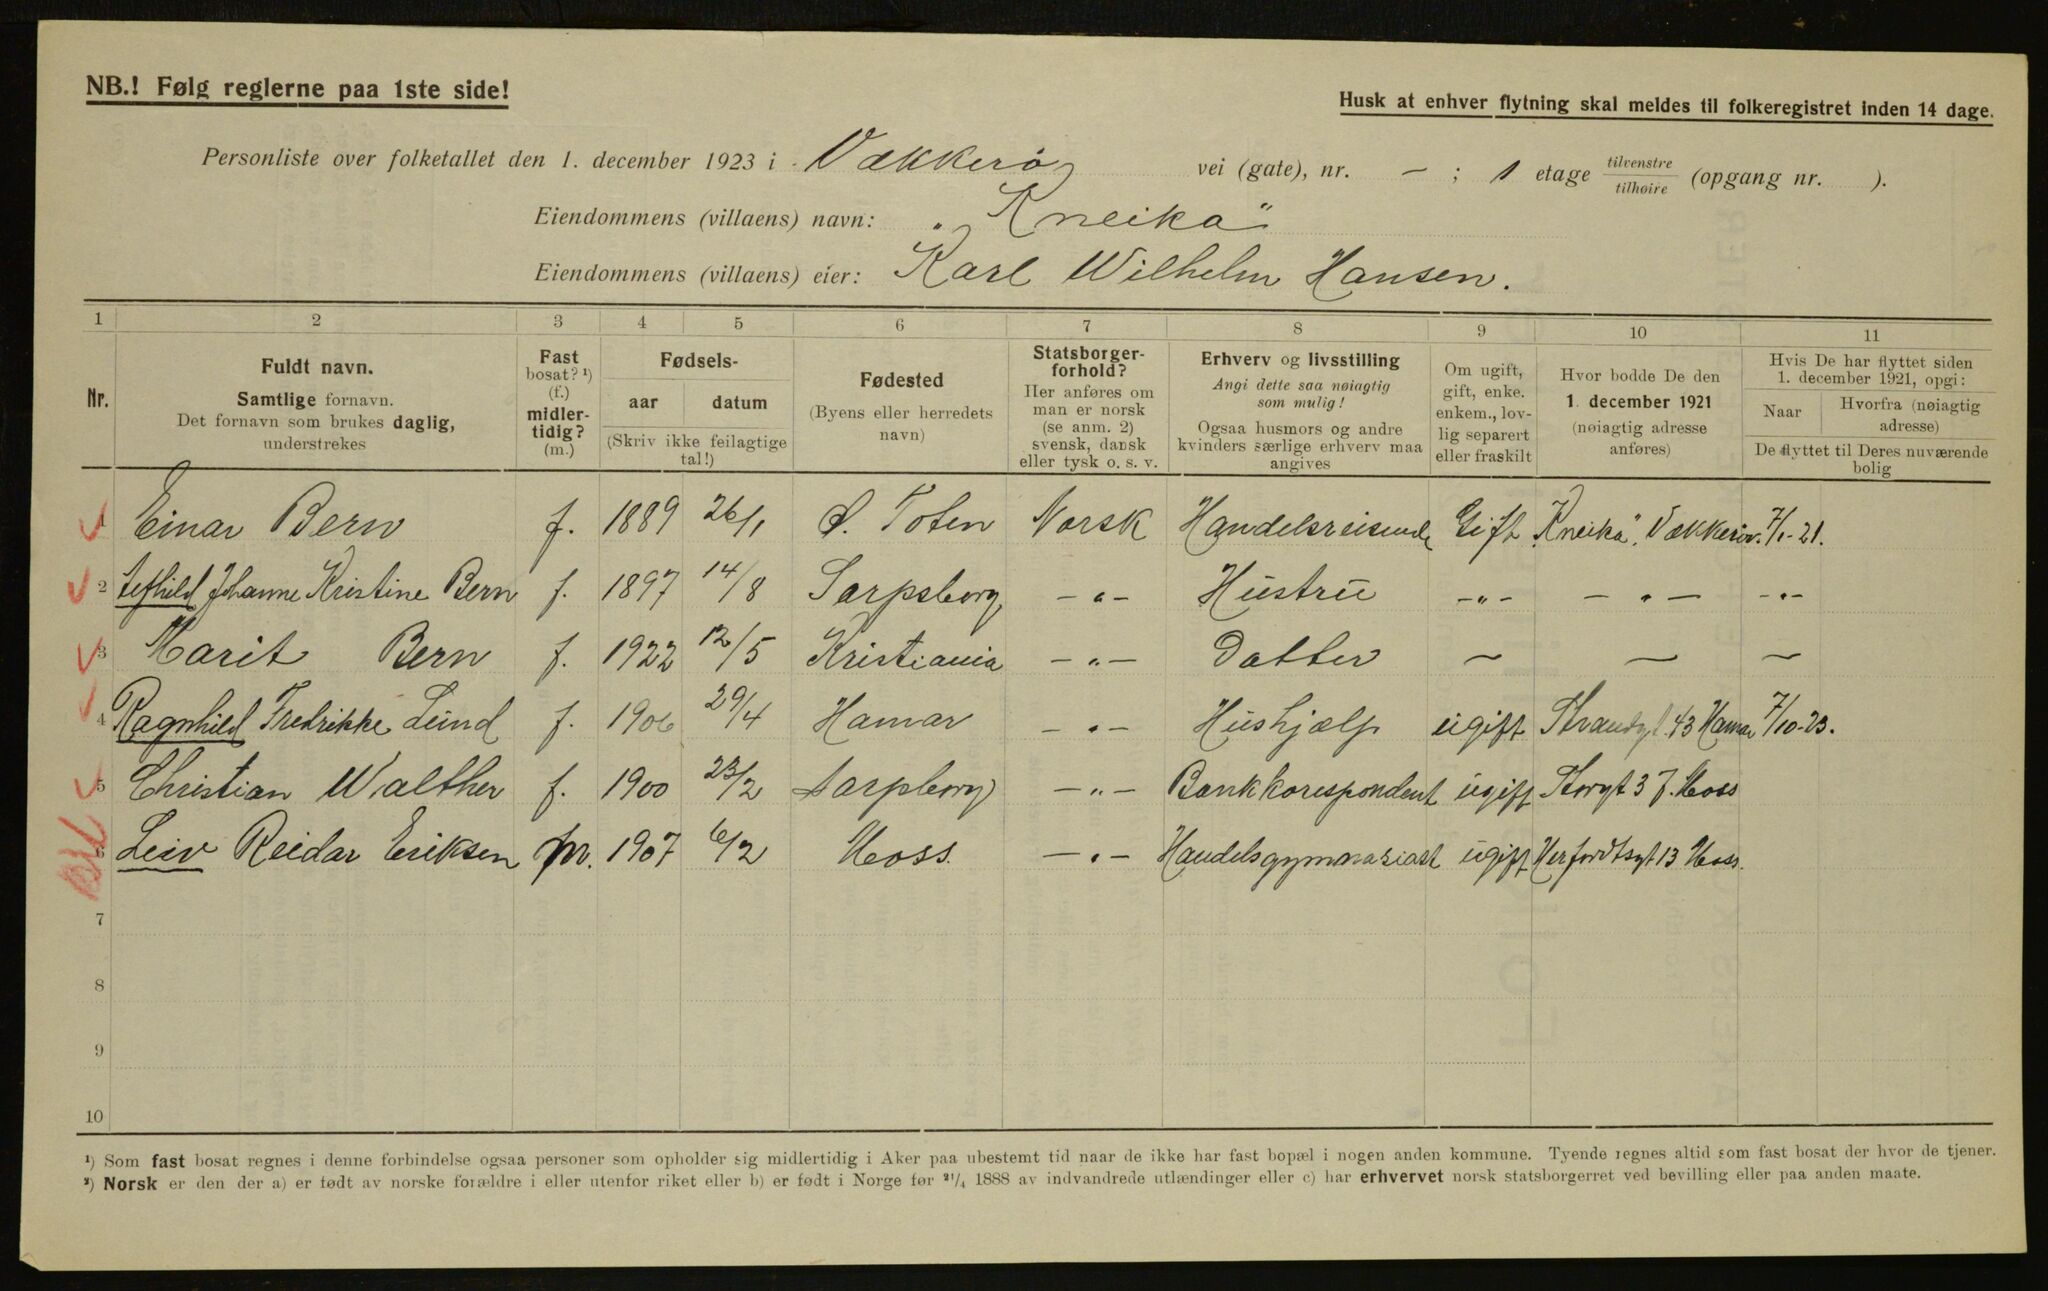 NB.! Følg reglerne paa 1ste side!
Husk at enhver flytning skal meldes til folkeregistret inden 14 dage.
Personliste over folketallet den 1. december 1923 i Vækkerö vei (gate), nr. – ; 1 etage tilvenstre/tilhøire (opgang nr. ).
Eiendommens (villaens) navn: „Kneika"
Eiendommens (villaens) eier: Karl Wilhelm Hansen.
1 2 3 4 5 6 7 8 9 10 11
Nr.
Fuldt navn.
Samtlige fornavn.
Det fornavn som brukes daglig,
understrekes
Fast
bosat? ¹)
(f.)
midler-
tidig?
(m.)
Fødsels-
aar datum
(Skriv ikke feilagtige
tal!)
Fødested
(Byens eller herredets
navn)
Statsborger-
forhold?
Her anføres om
man er norsk
(se anm. 2)
svensk, dansk
eller tysk o. s. v.
Erhverv og livsstilling
Angi dette saa nøiagtig
som mulig!
Ogsaa husmors og andre
kvinders særlige erhverv maa
angives
Om ugift,
gift, enke.
enkem., lov-
lig separert
eller fraskilt
Hvor bodde De den
1. december 1921
(nøiagtig adresse
anføres)
Hvis De har flyttet siden
1. december 1921, opgi:
Naar
Hvorfra (nøiagtig
adresse)
De flyttet til Deres nuværende
bolig
1 Einar Bern f. 1889 26/1 Ø. Toten Norsk Handelsreisende Gift „Kneika". Vækkeröv. 7/1-21.
2 Johanne Kristine Bern f. 1897 14/8 Sarpsborg –„– Hustru –„– –„– –„–
3 Marit Bern f. 1922 12/5 Kristiania –„– Datter – – –
4 Ragnhild Fredrikke Lund f. 1906 29/4 Hamar –„– Hushjælp ugift Strandgt. 43 Hamar 7/10-23.
5 Christian Walther f. 1900 23/2 Sarpsborg –„– Bankkorespondent ugift Storgt 37. Moss
6 Leiv Reidar Eriksen m. 1907 6/2 Moss. –„– Handelsgymnasiast ugift 13 Moss.
7
8
9
10
¹) Som fast bosat regnes i denne forbindelse ogsaa personer som opholder sig midlertidig i Aker paa ubestemt tid naar de ikke har fast bopæl i nogen anden kommune. Tyende regnes altid som fast bosat der hvor de tjener.
²) Norsk er den der a) er født av norske forældre i eller utenfor riket eller b) er født i Norge før ²¹/₄ 1888 av indvandrede utlændinger eller c) har erhvervet norsk statsborgerret ved bevilling eller paa anden maate.